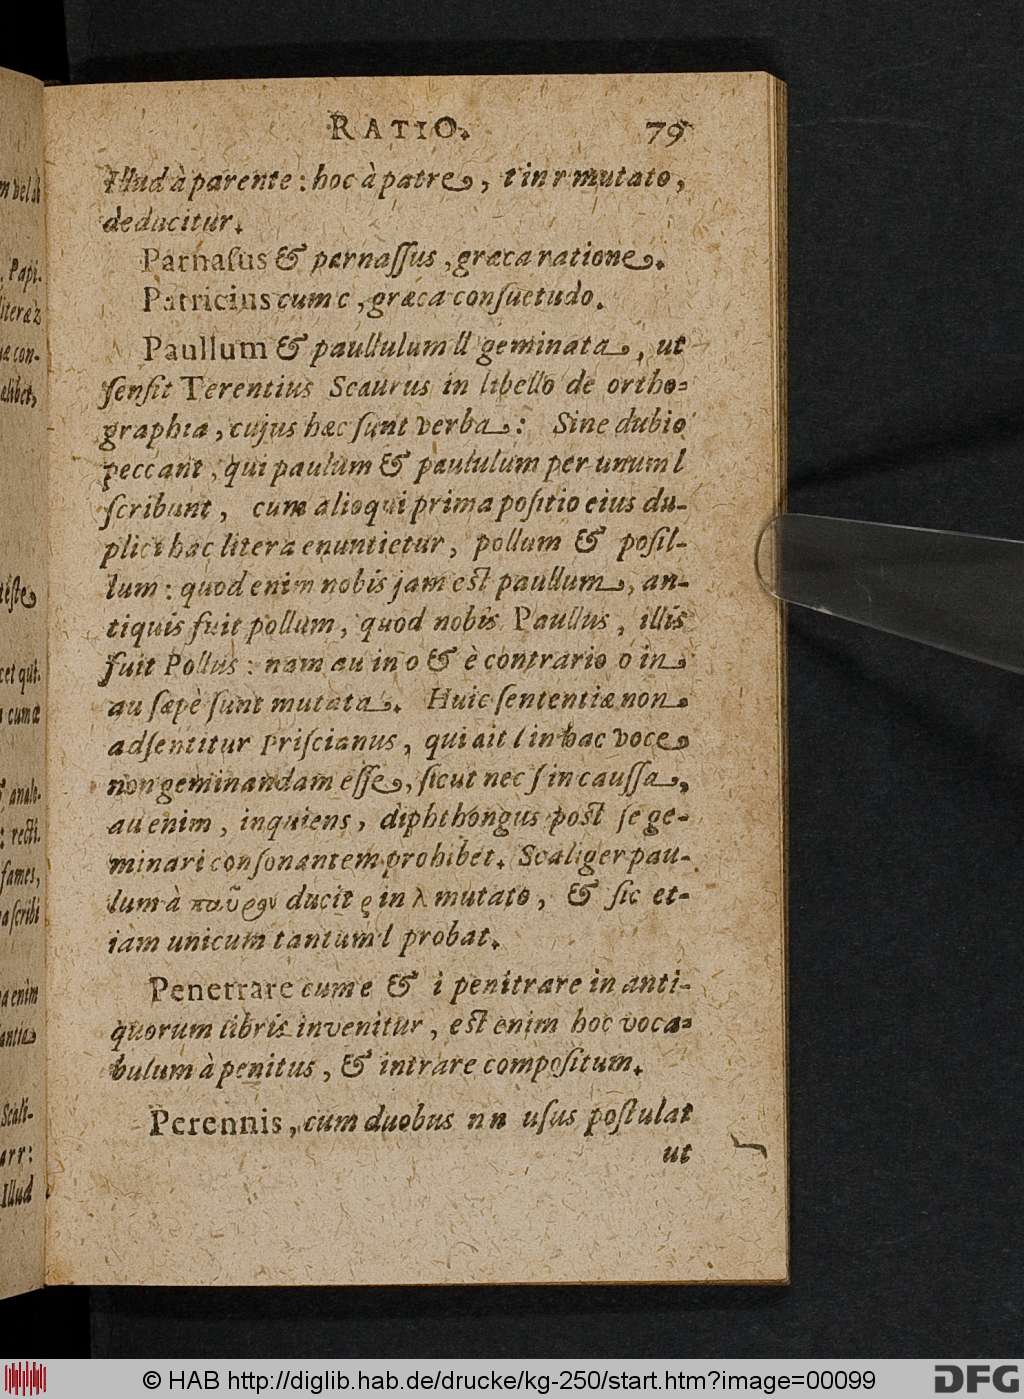 RATIO. 79
Illud à parente : hoc à patre, t in r mutato,
deducitur.
Parnaſus & parnaſſus, græca ratione.
Patricius cum c, græca conſuetudo.
Paullum & paullulum ll geminata, ut
ſenſit Terentius Scaurus in libello de ortho-
graphia, cujus hæc ſunt verba: Sine dubio
peccant, qui paulum & paululum per unum l
ſcribunt, cum alioqui prima poſitio eius du-
plici hac litera enuntietur, pollum & poſil-
lum: quod enim nobis jam est paullum, an-
tiquis fuit pollum, quod nobis Paullus, illis
fuit Pollus: nam au in o & è contrario o in
au ſæpè ſunt mutata. Huic ſententiæ non
adſentitur Priſcianus, qui ait l in hac voce
non geminandam eſſe, ſicut nec ſ in cauſſa,
au enim, inquiens, diphthongus post ſe ge-
minari conſonantem prohibet. Scaliger pau-
lum à παῦρον ducit ρ in λ mutato, & ſic et-
iam unicum tantum l probat.
Penetrare cum e & i penitrare in anti-
quorum libris invenitur, est enim hoc voca-
bulum à penitus, & intrare compoſitum.
Perennis, cum duobus nn uſus poſtulat
ut
© HAB http://diglib.hab.de/drucke/kg-250/start.htm?image=00099
DFG